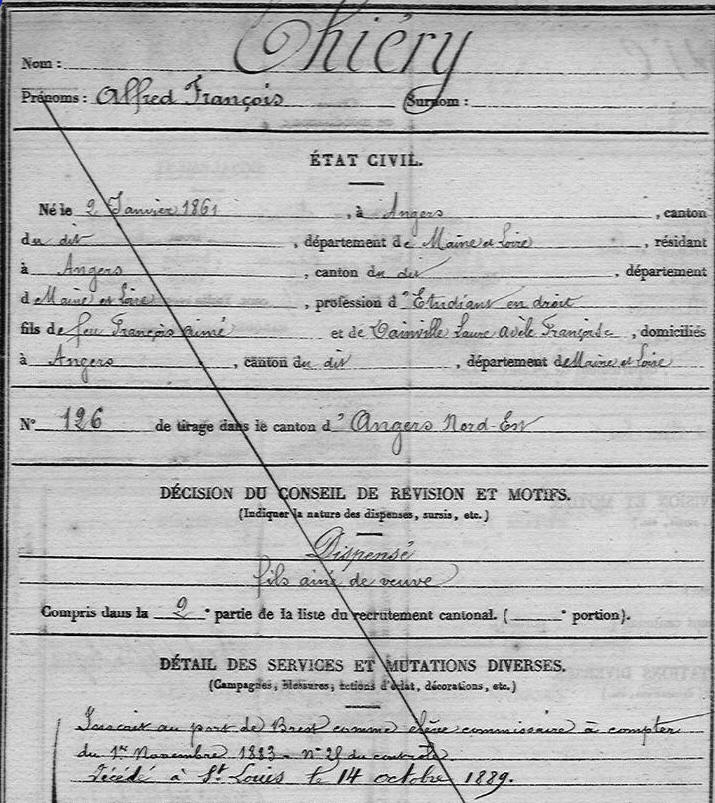 Nom : Thiéry
Prénoms : Alfred François Surnom :
ÉTAT CIVIL.
Né le 2 Janvier 1861, à Angers, canton
du dit, département de Maine et Loire, résidant
à Angers, canton du dit, département
d Maine et Loire, profession d' Etudiant en droit
fils de feu François Aimé et de Tainville Laure Adèle Françoise, domiciliés
à Angers, canton du dit, département de Maine et Loire
N° 126 de tirage dans le canton d' Angers Nord-Est
DÉCISION DU CONSEIL DE RÉVISION ET MOTIFS.
(Indiquer la nature des dispenses, sursis, etc.)
Dispensé
fils ainé de veuve
Compris dans la 2e partie de la liste du recrutement cantonal. ( e portion).
DÉTAIL DES SERVICES ET MUTATIONS DIVERSES.
(Campagnes, blessures, actions d'éclat, décorations, etc.)
Inscrit au port de Brest comme élève commissaire à compter
du 1er Novembre 1883 - N° du contrôle.
Décédé à St Louis le 14 octobre 1889.